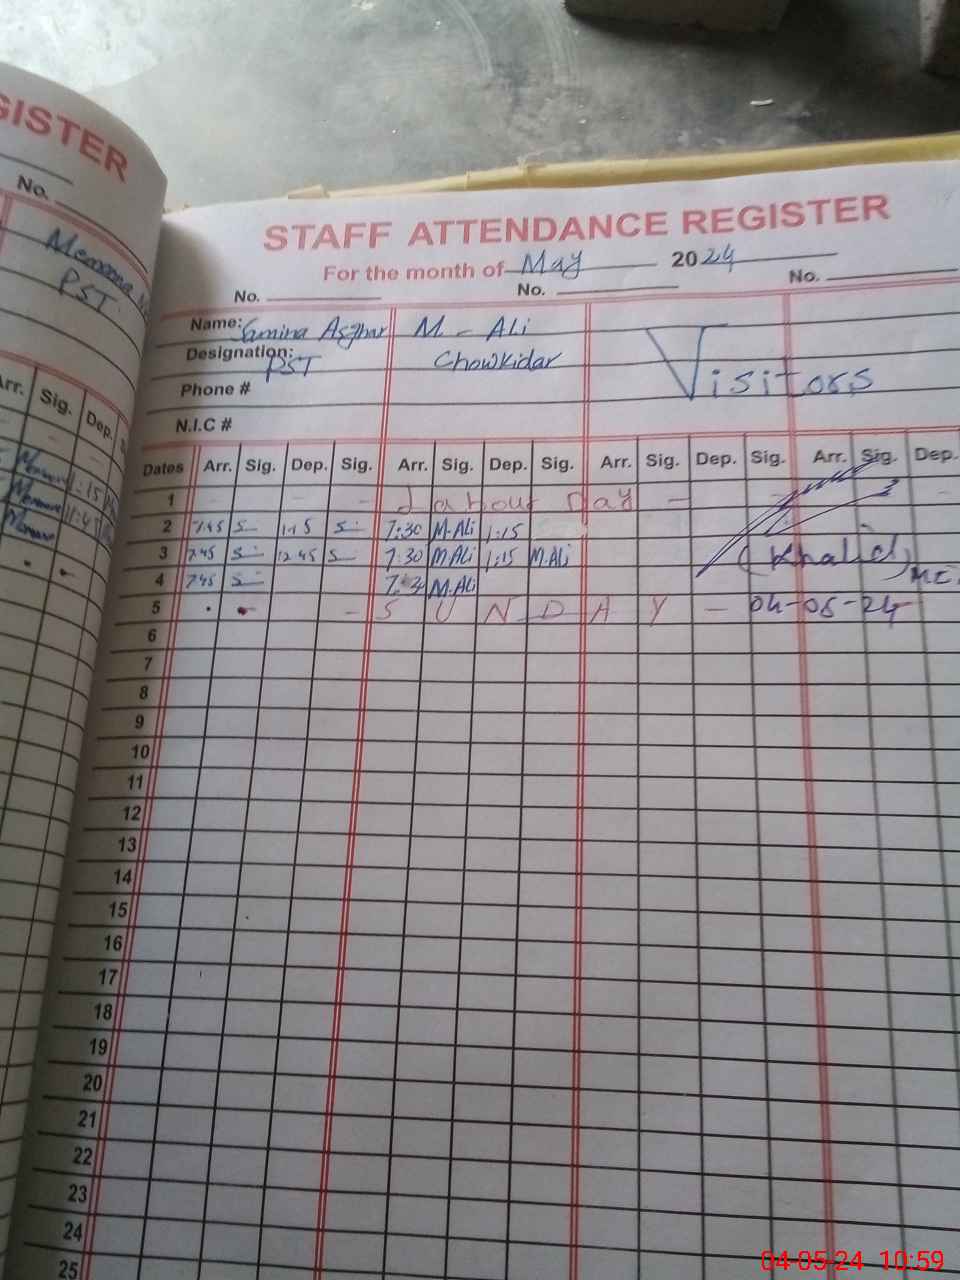 GISTER
No.
Memoona
PST
Arr. Sig. Dep.
1:15
11:45
STAFF ATTENDANCE REGISTER
For the month of May 2024
No. No. No.
Name: Samina Asghar M - Ali
Designation: PST Chowkidar Visitors
Phone #
N.I.C #
Dates Arr. Sig. Dep. Sig. Arr. Sig. Dep. Sig. Arr. Sig. Dep. Sig. Arr. Sig. Dep.
1 - Labour Day -
2 7:45 S 1:15 S 7:30 M.Ali 1:15
3 7:45 S 12:45 S 7:30 M.Ali 1:15 M.Ali (Khalid)
4 7:45 S 7:3 M.Ali
5 - S U N D A Y - 04-05-24
6
7
8
9
10
11
12
13
14
15
16
17
18
19
20
21
22
23
24
25
04-05-24 10:59